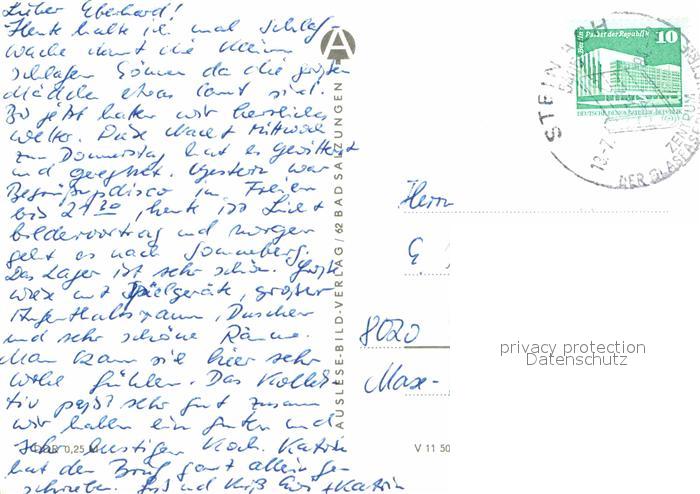 Lieber Eberhard!
Heute halte ich mal Schlaf-
wache damit die kleinen
schlafen können da die großen
Mädchen etwas laut sind.
Bis jetzt hatten wir herrliches
Wetter. Diese Nacht Mittwoch
zum Donnerstag hat es gewittert
und geregnet. Gestern war
Begrüßungsdisco im Freien
bis 21³⁰, heute ist Licht
bildervortrag und morgen
geht es nach Sonneberg.
Das Lager ist sehr schön. Große
Wiese mit Spielgeräte, großer
Aufenthaltsraum, Duschen
und sehr schöne Räume.
Man kann sich hier sehr
wohl fühlen. Das Kollek-
tiv paßt sehr gut zusammen
wir haben ein guten und
sehr lustigen Koch. Katrin
hat den Brief ganz allein ge-
schrieben. Gruß und Kuß + Katrin
DDR 0,25 M
AUSLESE-BILD-VERLAG / 62 BAD SALZUNGEN
A
V 11 50
Berlin, Palast der Republik
10
DEUTSCHE DEMOKRATISCHE REPUBLIK
STEINACH
ZENTRUM
DER GLAS
Herrn
8020
Max-
privacy protection
Datenschutz